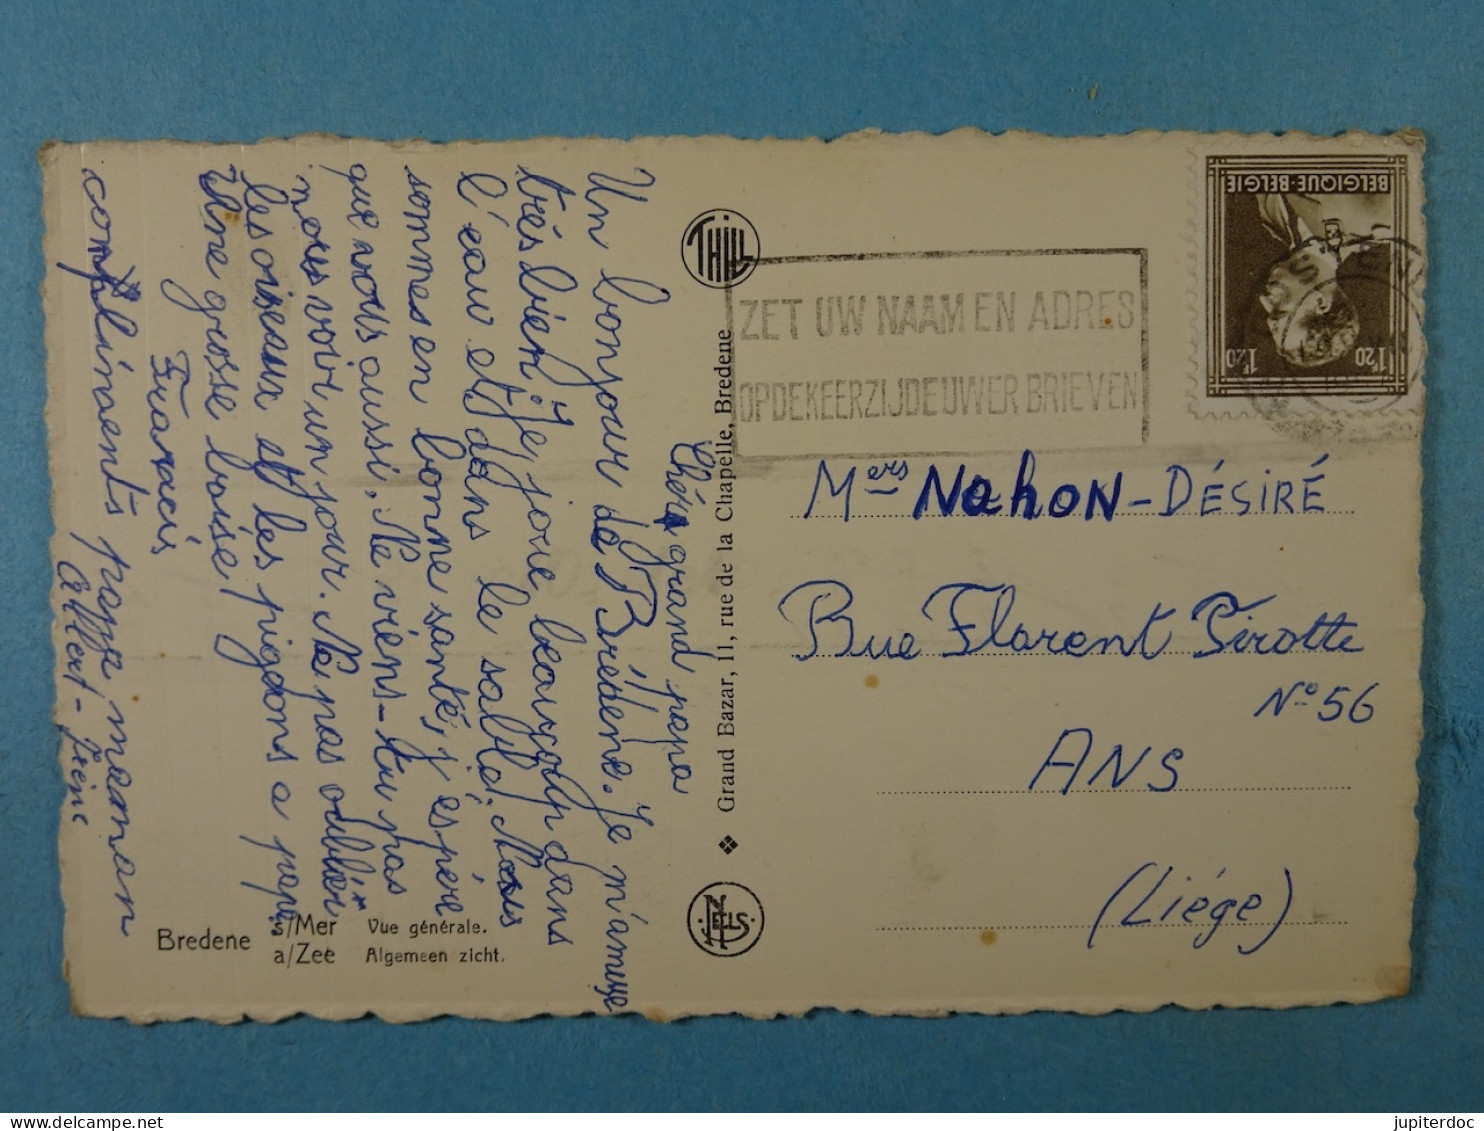 Chér grand papa
Un bonjour de Brédene. Je m'amuse
très bien. Je joue beaucoup dans
l'eau et dans le sable. Nous
sommes en bonne santé, j'éspère
que vous aussi. Ne viens-tu pas
nous voir un jour. Ne pas oublier
les oiseaux et les pigeons a papa
Une grosse baise
Francis
compliments papa maman
Albert-Irène
THILL
Grand Bazar, 11, rue de la Chapelle, Bredene
NELS
Bredene s/Mer Vue générale.
a/Zee Algemeen zicht.
ZET UW NAAM EN ADRES
OP DE KEERZIJDE UWER BRIEVEN
BELGIQUE-BELGIE
1F20 1F20
Mers Nahon-Désiré
Rue Florent Pirotte
N° 56
ANS
(Liége)
jupiterdoc